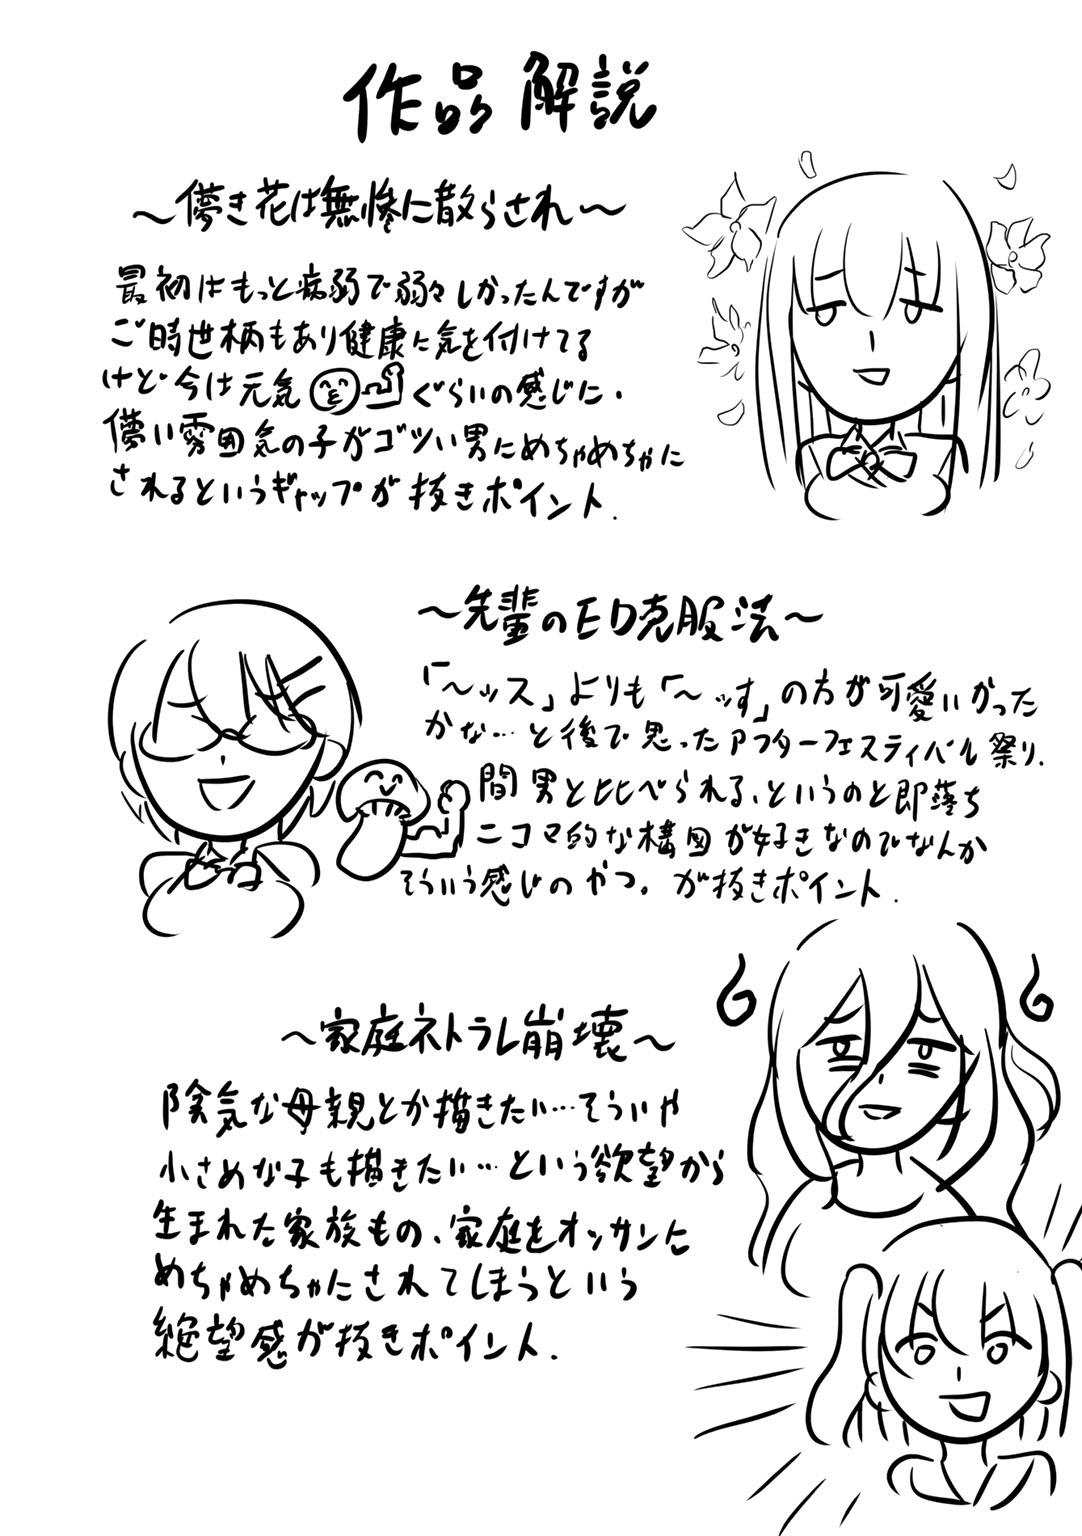 作品解説
〜儚き花は無惨に散らされ〜
最初はもっと病弱で弱々しかったんですが
ご時世柄もあり健康に気を付けてる
けど今は元気ぐらいの感じに、
儚い雰囲気の子がゴツい男にめちゃめちゃに
されるというギャップが抜きポイント.
〜先輩のED克服法〜
「〜ッス」よりも「〜ッす」の方が可愛いかった
かな…と後で思ったアフターフェスティバル祭り.
間男と比べられる、というのと即落ち
二コマ的な構図が好きなのでなんか
そういう感じのやつ。が抜きポイント.
〜家庭ネトラレ崩壊〜
陰気な母親とか描きたい…そういや
小さめな子も描きたい…という欲望から
生まれた家族もの、家庭をオッサンに
めちゃめちゃにされてしまうという
絶望感が抜きポイント.